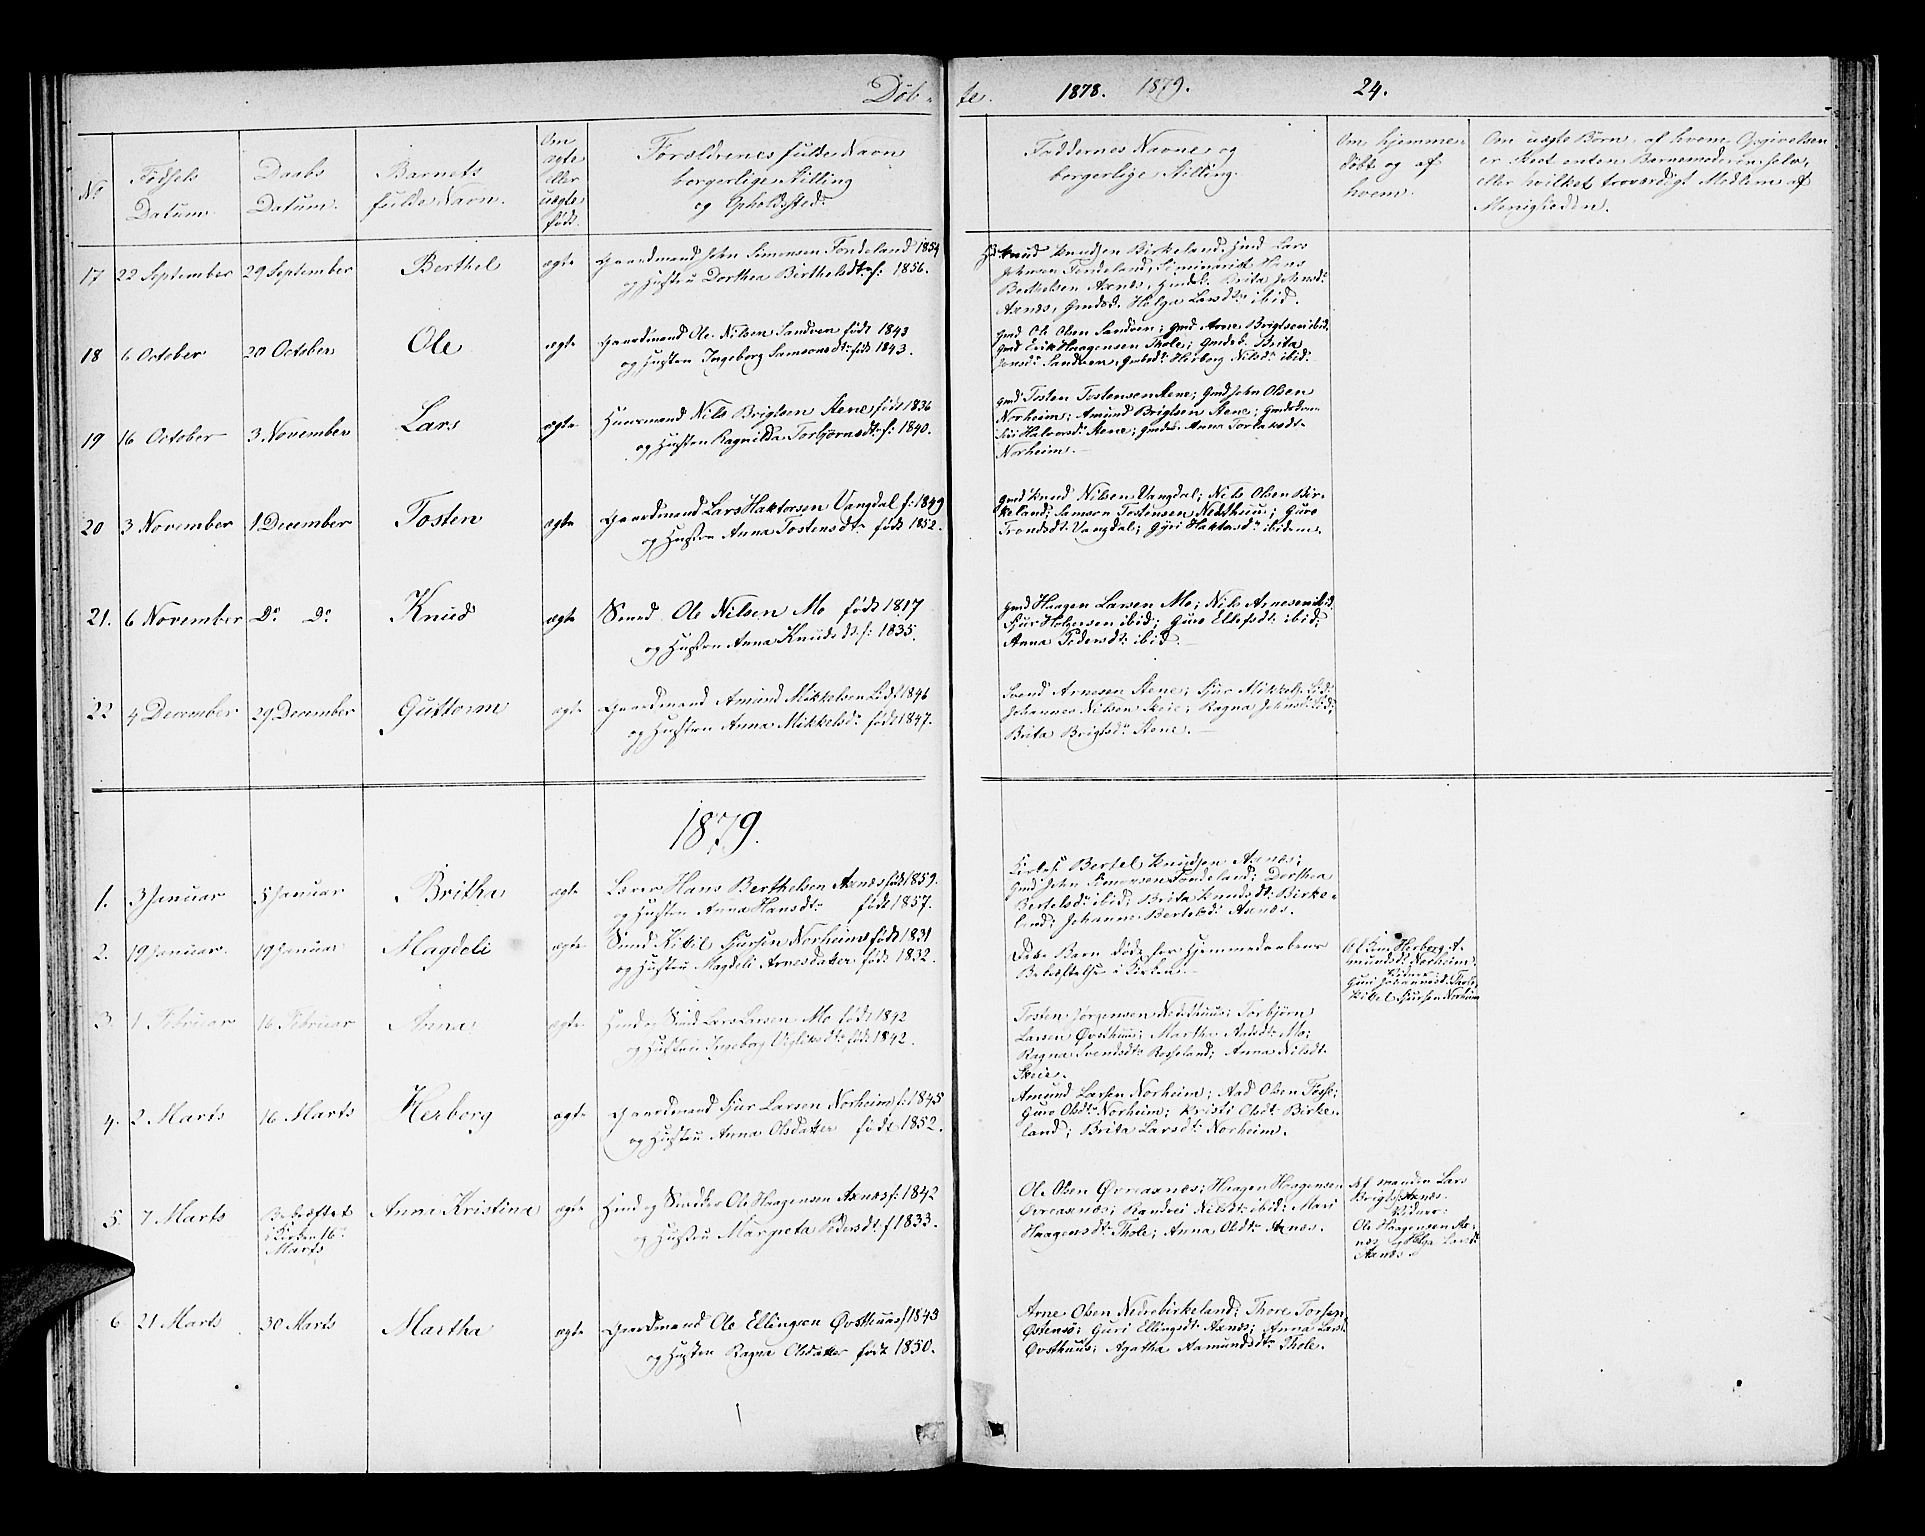 Döb-
te.
1878. 1879.
24.
No
Fødsels
Datum.
Daabs
Datum.
Barnets
fulde Navn.
Om
ægte
eller
uægte
født.
Forældrenes fulde Navn
borgerlige Stilling
og Opholdssted.
Faddernes Navne og
borgerlige Stilling.
Om hjemme-
døbt og af
hvem.
Om uægte Børn, af hvem Opgivelsen
er skeet enten Barnemoderen selv,
eller hvilket troværdigt Medlem af
Menigheden.
17 22 September 29 September Berthel ægte
Gaardmand John Simonsen Tondeland 1854
og Hustru Dorthea Birthelsdt. f: 1856.
Knud Knudsen Birkeland, Lars
Johnsen Tondeland, Seminarist Hans
Berthelsen Axnes, Brita Johnsdr
Axnes, Helga Larsdtr ibid.
18 6 October 20 October Ole ægte
Gaardmand Ole Nilsen Sandven født 1843
og Hustru Ingeborg Samsonsdt. født 1843.
Gmd Ole Olsen Sandven; Gmd Arne Brigtsen ibid.
Gmd Erik Haagensen Thole; Brita
Jonsdr Sandven, Herborg Nilsdr ibid.
19 16 October 3 November Lars ægte
Huusmand Nils Brigtsen Stene født 1836
og Hustru Ragnilda Torbjörnsdt. f: 1840.
Gmd Tosten Tostensen Stene; Gmd John Olsen
Norheim; Amund Brigtsen Stene;
Siri Halvorsdr Stene; Anna Torlaksdt.
Norheim.
20 3 November 1 December Tosten ægte
Gaardmand Lars Haktorsen Vangdal f: 1849
og Hustru Anna Tostensdtr født 1852.
Gmd Knud Nilsen Vangdal; Nils Olsen Bir-
keland; Samson Tostensen Nedsthuus; Guro
Trondsdt. Vangdal; Gyri Haktorsdr ibidem.
21. 6 November Do Do Knud ægte
Smed Ole Nilsen Mo født 1817
og Hustru Anna Knudsdt. f: 1835.
Gmd Haagen Larsen Mo; Nils Arnesen ibid.
Sjur Helgesen ibid; Guro Ellefsdt. ibid;
Anna Pedersdt. ibid.
22 4 December 29 December Guttorm ægte
Gaardmand Amund Mikkelsen født 1846
og Hustru Anna Mikkelsdr født 1847.
Svend Arnesen Stene; Sjur Mikkels.
Johannes Nilsen Skeie; Ragna Johnsdr
Brita Brigtsdr Stene.
1879.
1. 3 Januar 5 Januar Britha ægte
Lærer Hans Berthelsen Axnes født 1859.
og Hustru Anna Hansdtr født 1857.
Bertel Knudsen Axnes;
Gmd John Simonsen Tondeland; Dorthea
Bertelsdr ibid; Brita Knudsdt. Birke-
land; Johanne Bertelsdr Axnes.
2. 19 Januar. 19 Januar Magdeli ægte
Smed Kitil Sjursen Norheim født 1831
og Hustru Magdeli Arnesdatter født 1832.
Dette Barn døde før Hjemmedaabens
Bekræftelse i Kirken.
Herborg A-
mundsdt. Norheim.
Vidner:
Guri Johannesd. Thole,
Kitil Sjursen Norheim
3. 1 Februar 16 Februar Anna ægte
og Smed Lars Larsen Mo født 1842
og Hustru Ingeborg født 1842.
Tosten Jörgensen Nedsthuus; Torbjörn
Larsen Øvsthuus; Martha Mo;
Ragna Svendsdt. Rosseland; Anna Nilsdt.
Skeie.
4. 2 Marts 16 Marts Herborg ægte
Gaardmand Sjur Larsen Norheim f: 1845
og Hustru Anna Olsdatter født 1852.
Amund Larsen Norheim; Aad Olsen Fosse;
Guro Olsdtr Norheim; Kristi Olsdt. Birke-
land; Brita Larsdt. Norheim.
5. 7 Marts Bekræftet
i Kirken 16de
Marts
Anna Kristina ægte
og Ole Haagensen Axnes f: 1842
og Hustru Margreta Pedersdt. f 1833.
Ole Olsen Øvreaxnes; Haagen Haagensen
Øvreaxnes; Randvei Nilsdt. ibid; Mari
Haagensdt. Thole; Anna Olsdt. Axnes.
Af manden Lars
Brigts. Axnes.
Vidner:
Ole Haagensen Ax-
nes og Helga Larsdt.
Axnes.
6 21 Marts 30 Marts Martha ægte
Gaardmand Ole Ellingsen Øvsthuus f 1843
og Hustru Ragna Olsdatter født 1850.
Arne Olsen Nedrebirkeland; Thore Torsen
Östensö; Guri Ellingsdt. Axnes; Anna Larsd.
Øvsthuus; Agatha Aamundsdtr Thole.